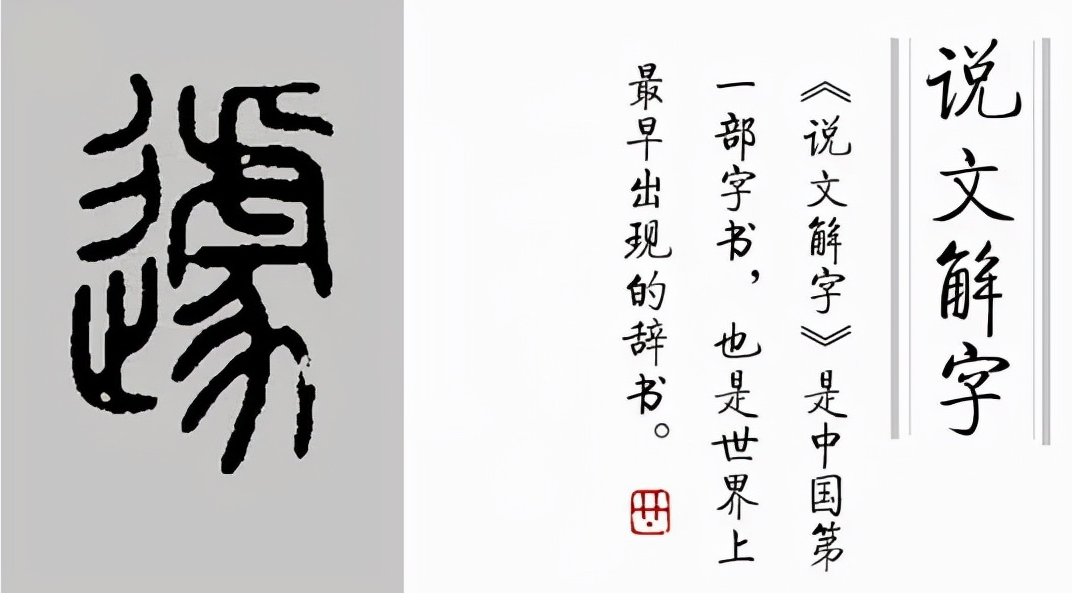 说文解字
《说文解字》是中国第
一部字书，也是世界上
最早出现的辞书。
遽